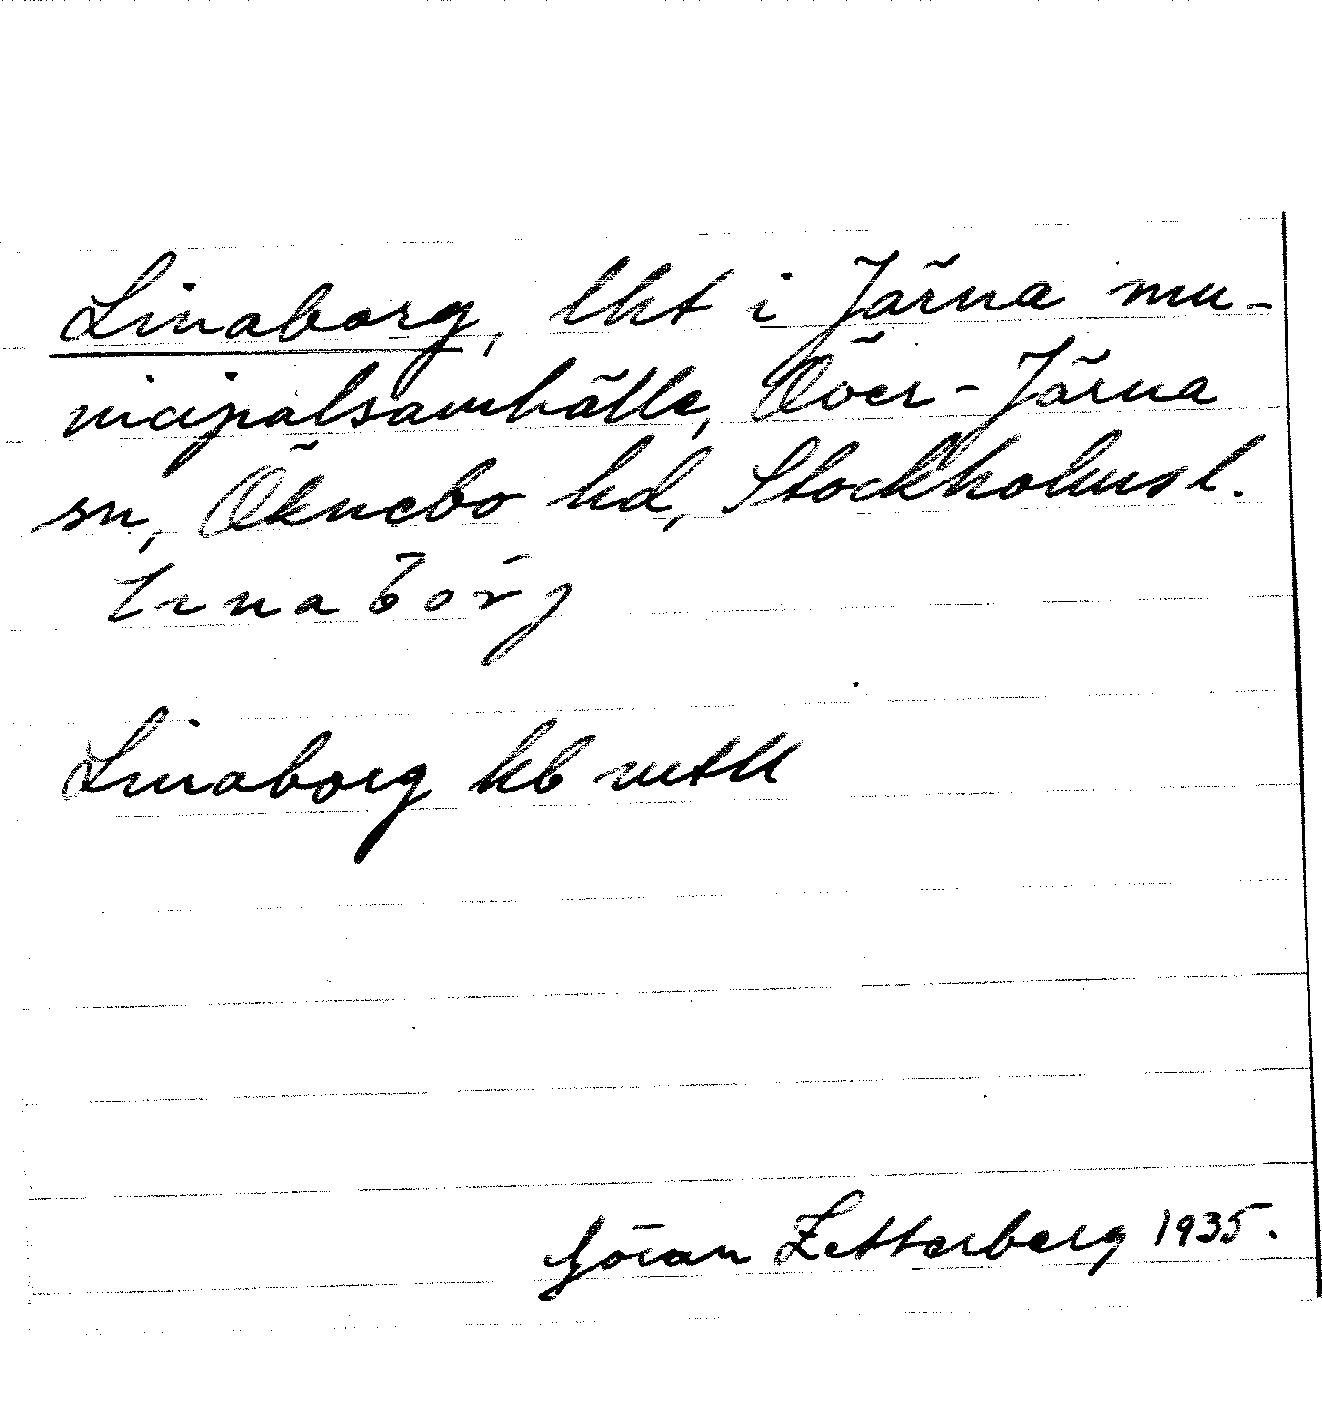 Linaborg, lht i Järna mu-
nicipalsamhälle, Över-Järna
sn, Öknebo hd, Stockholms l.
Linaborg kb mtll
Göran Zetterberg 1935.